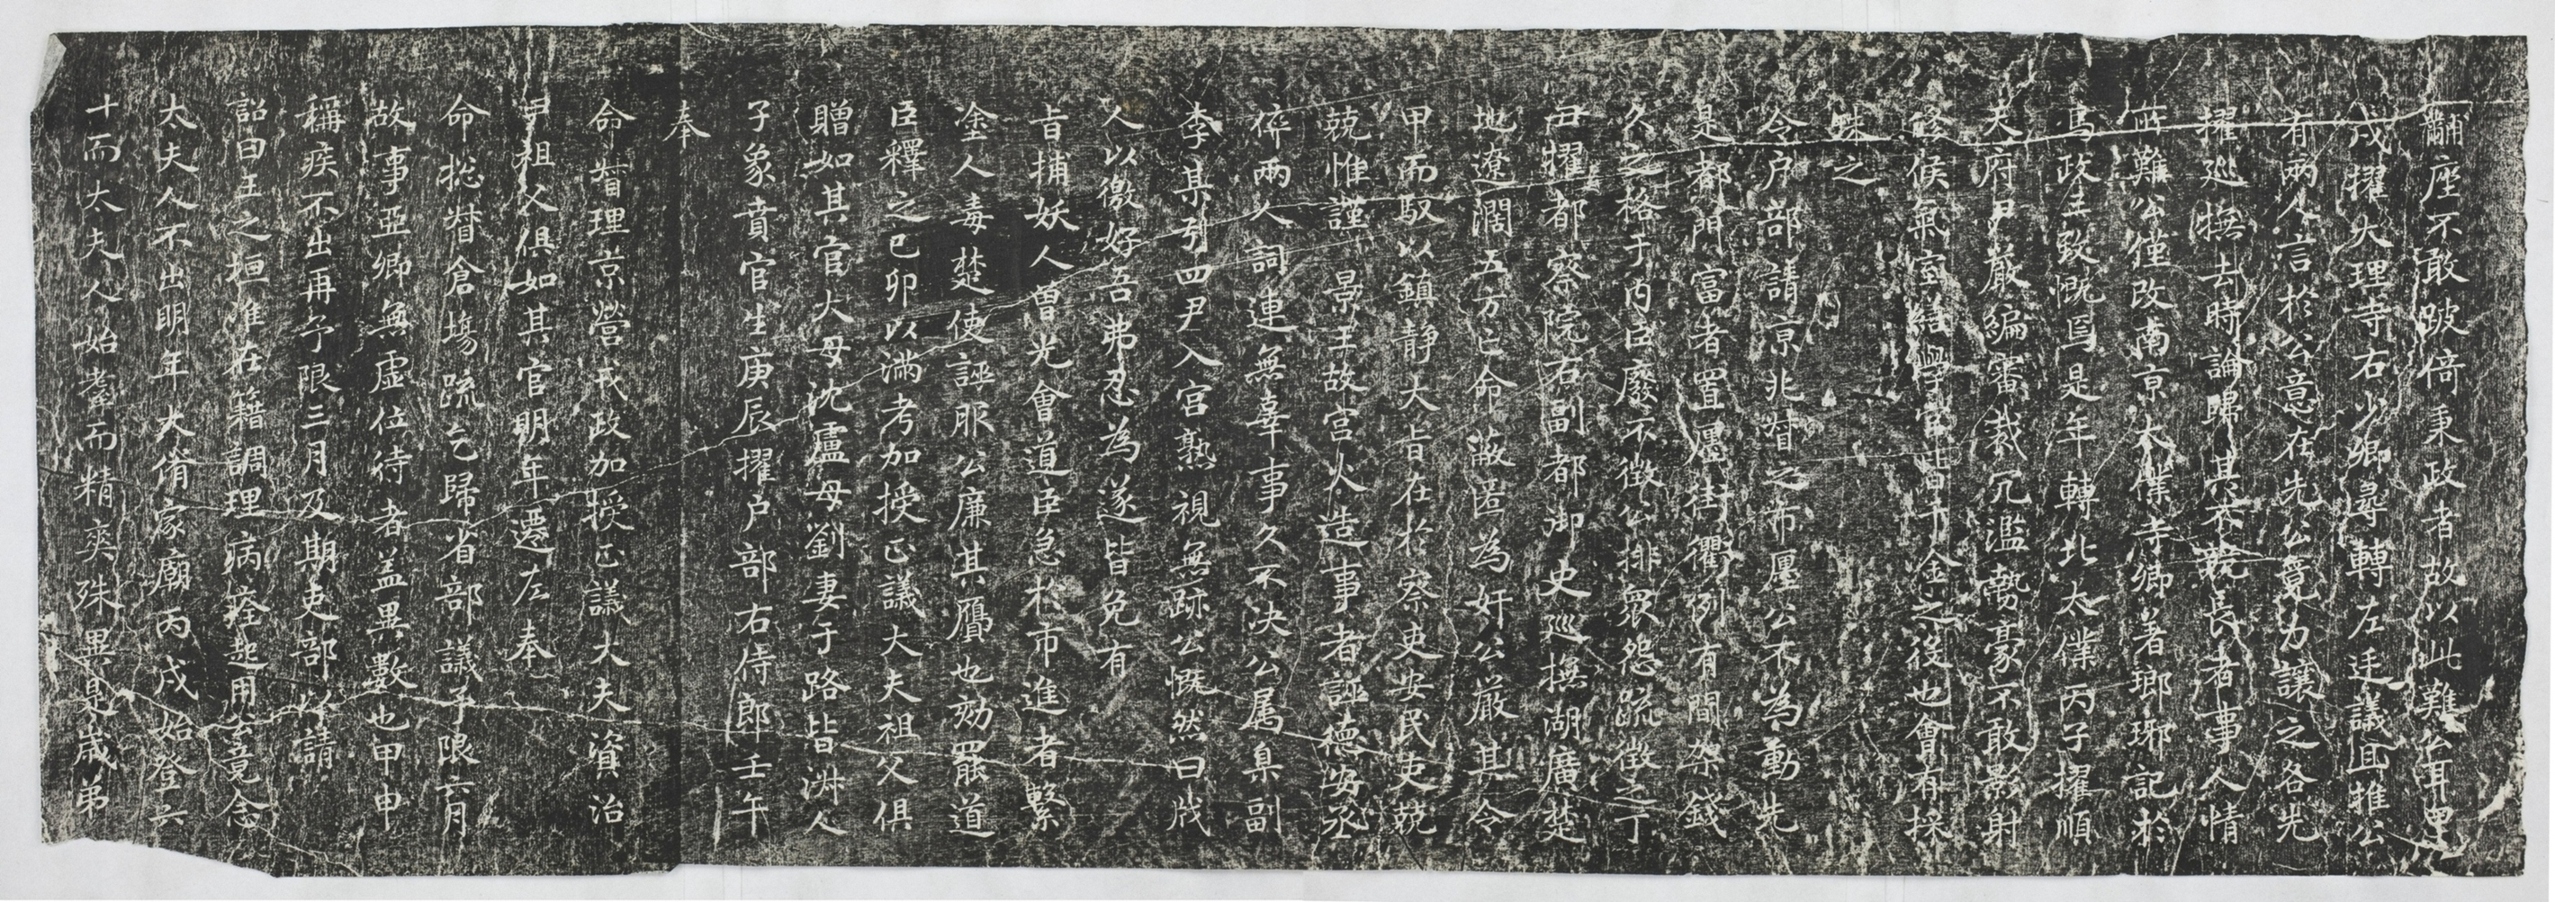 黼座不敢跛倚秉政者故以此難公耳里
戌擢大理寺右少卿尋轉左廷議且推公
有兩人言於公意在先公竟力讓之各先
擢巡撫去時論歸其不競長者事人情
所難公僅改南京太僕寺卿著瑯琊記於
馬政三致慨焉是年轉北太僕丙子擢順
天府尹嚴編審裁冗濫勢豪不敢影射
修候氣室繕學宮皆千金之後也會有採
珠之
令戶部請京兆督之市廛公不為動先
是都門富者置廛街衢列有間架錢
久之格于內臣廢不徵公排眾怨疏徵之丁
丑擢都察院右副都御史巡撫湖廣楚
地遼濶五方亡命蔽匿為奸公嚴其令
甲而馭以鎮靜大旨在於察吏安民吏兢
兢惟謹 景王故宮火造事者誣德安丞
倅兩人詞連無辜事久不決公属臬副
李某引四尹入宮熟視無跡公慨然曰戕
人以徼好吾弗忍為遂皆免有
旨捕妖人曾光會道臣急於市進者繫
塗人毒楚使誣服公廉其贋也劾罷道
臣釋之己卯以滿考加授正議大夫祖父俱
贈如其官大母沈盧母劉妻于路皆淑人
子象賁官生庚辰擢户部右侍郎壬午
奉
命督理京營戎政加授正議大夫資治
尹祖父俱如其官明年遷左奉
命総督倉塲疏乞歸省部議予限六月
故事亞卿無虛位待者盖異數也甲申
稱疾不出再予限三月及期吏部以請
詔曰王之垣准在籍調理病痊起用公竟念
太夫人不出明年大脩家廟丙戌始登六
十而太夫人始耋而精爽殊異是歲弟